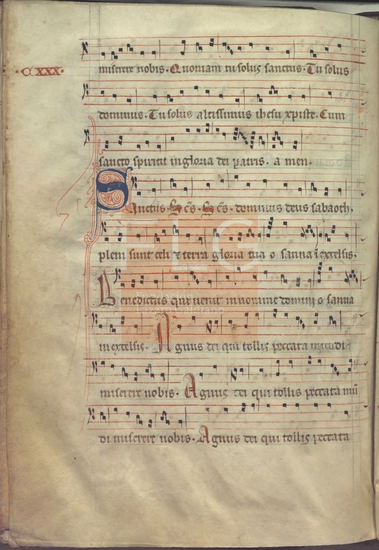 ·CXXX·
miserere nobis. Quoniam tu solus sanctus. Tu solus
dominus. Tu solus altissimus ihesu xpiste. Cum
sancto spiritu in gloria dei patris. a men.
Sanctus. Scs. Scs. dominus deus sabaoth.
pleni sunt celi et terra gloria tua o sanna i excelsis.
Benedictus qui uenit in nomine domini o sanna
in excelsis. Agnus dei qui tollis peccata mundi
miserere nobis. Agnus dei qui tollis peccata mū
di miserere nobis. Agnus dei qui tollis peccata